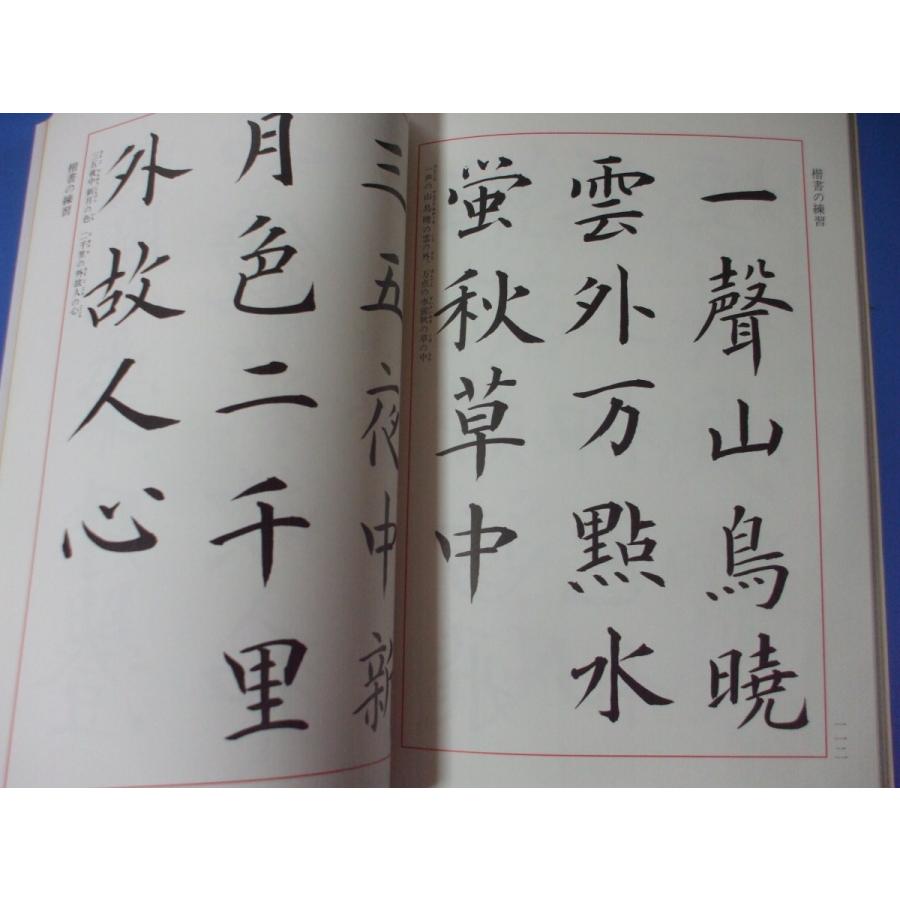 楷書の練習
一聲山鳥曉
雲外万點水
蛍秋草中
一声の山鳥曉の雲の外 万点の水蛍秋の草の中
一一二
三五夜中新
月色二千里
外故人心
三五夜中新月の色 二千里の外故人の心
楷書の練習